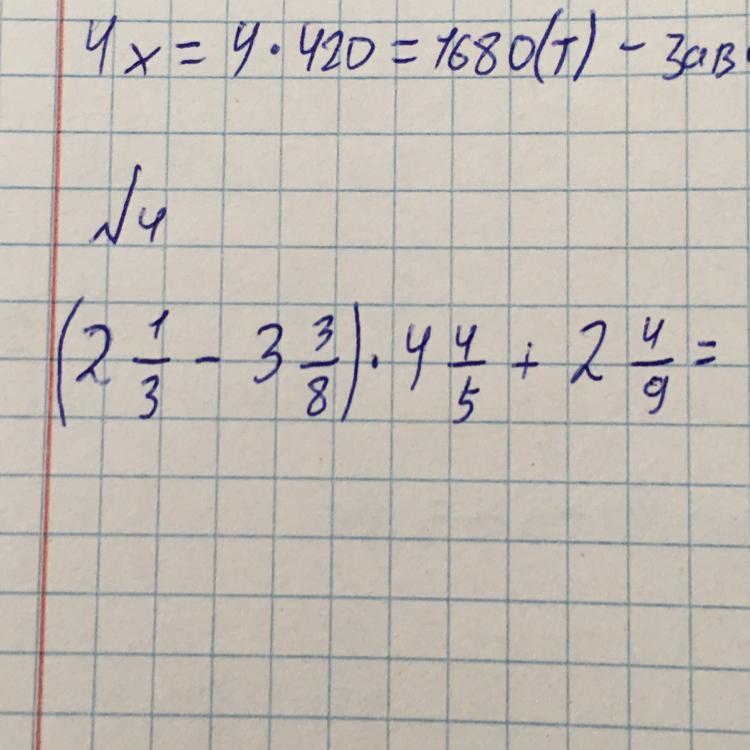 4x = 4 · 420 = 1680(т) -
√4
(2 1/3 - 3 3/8) · 4 4/5 + 2 4/9 =